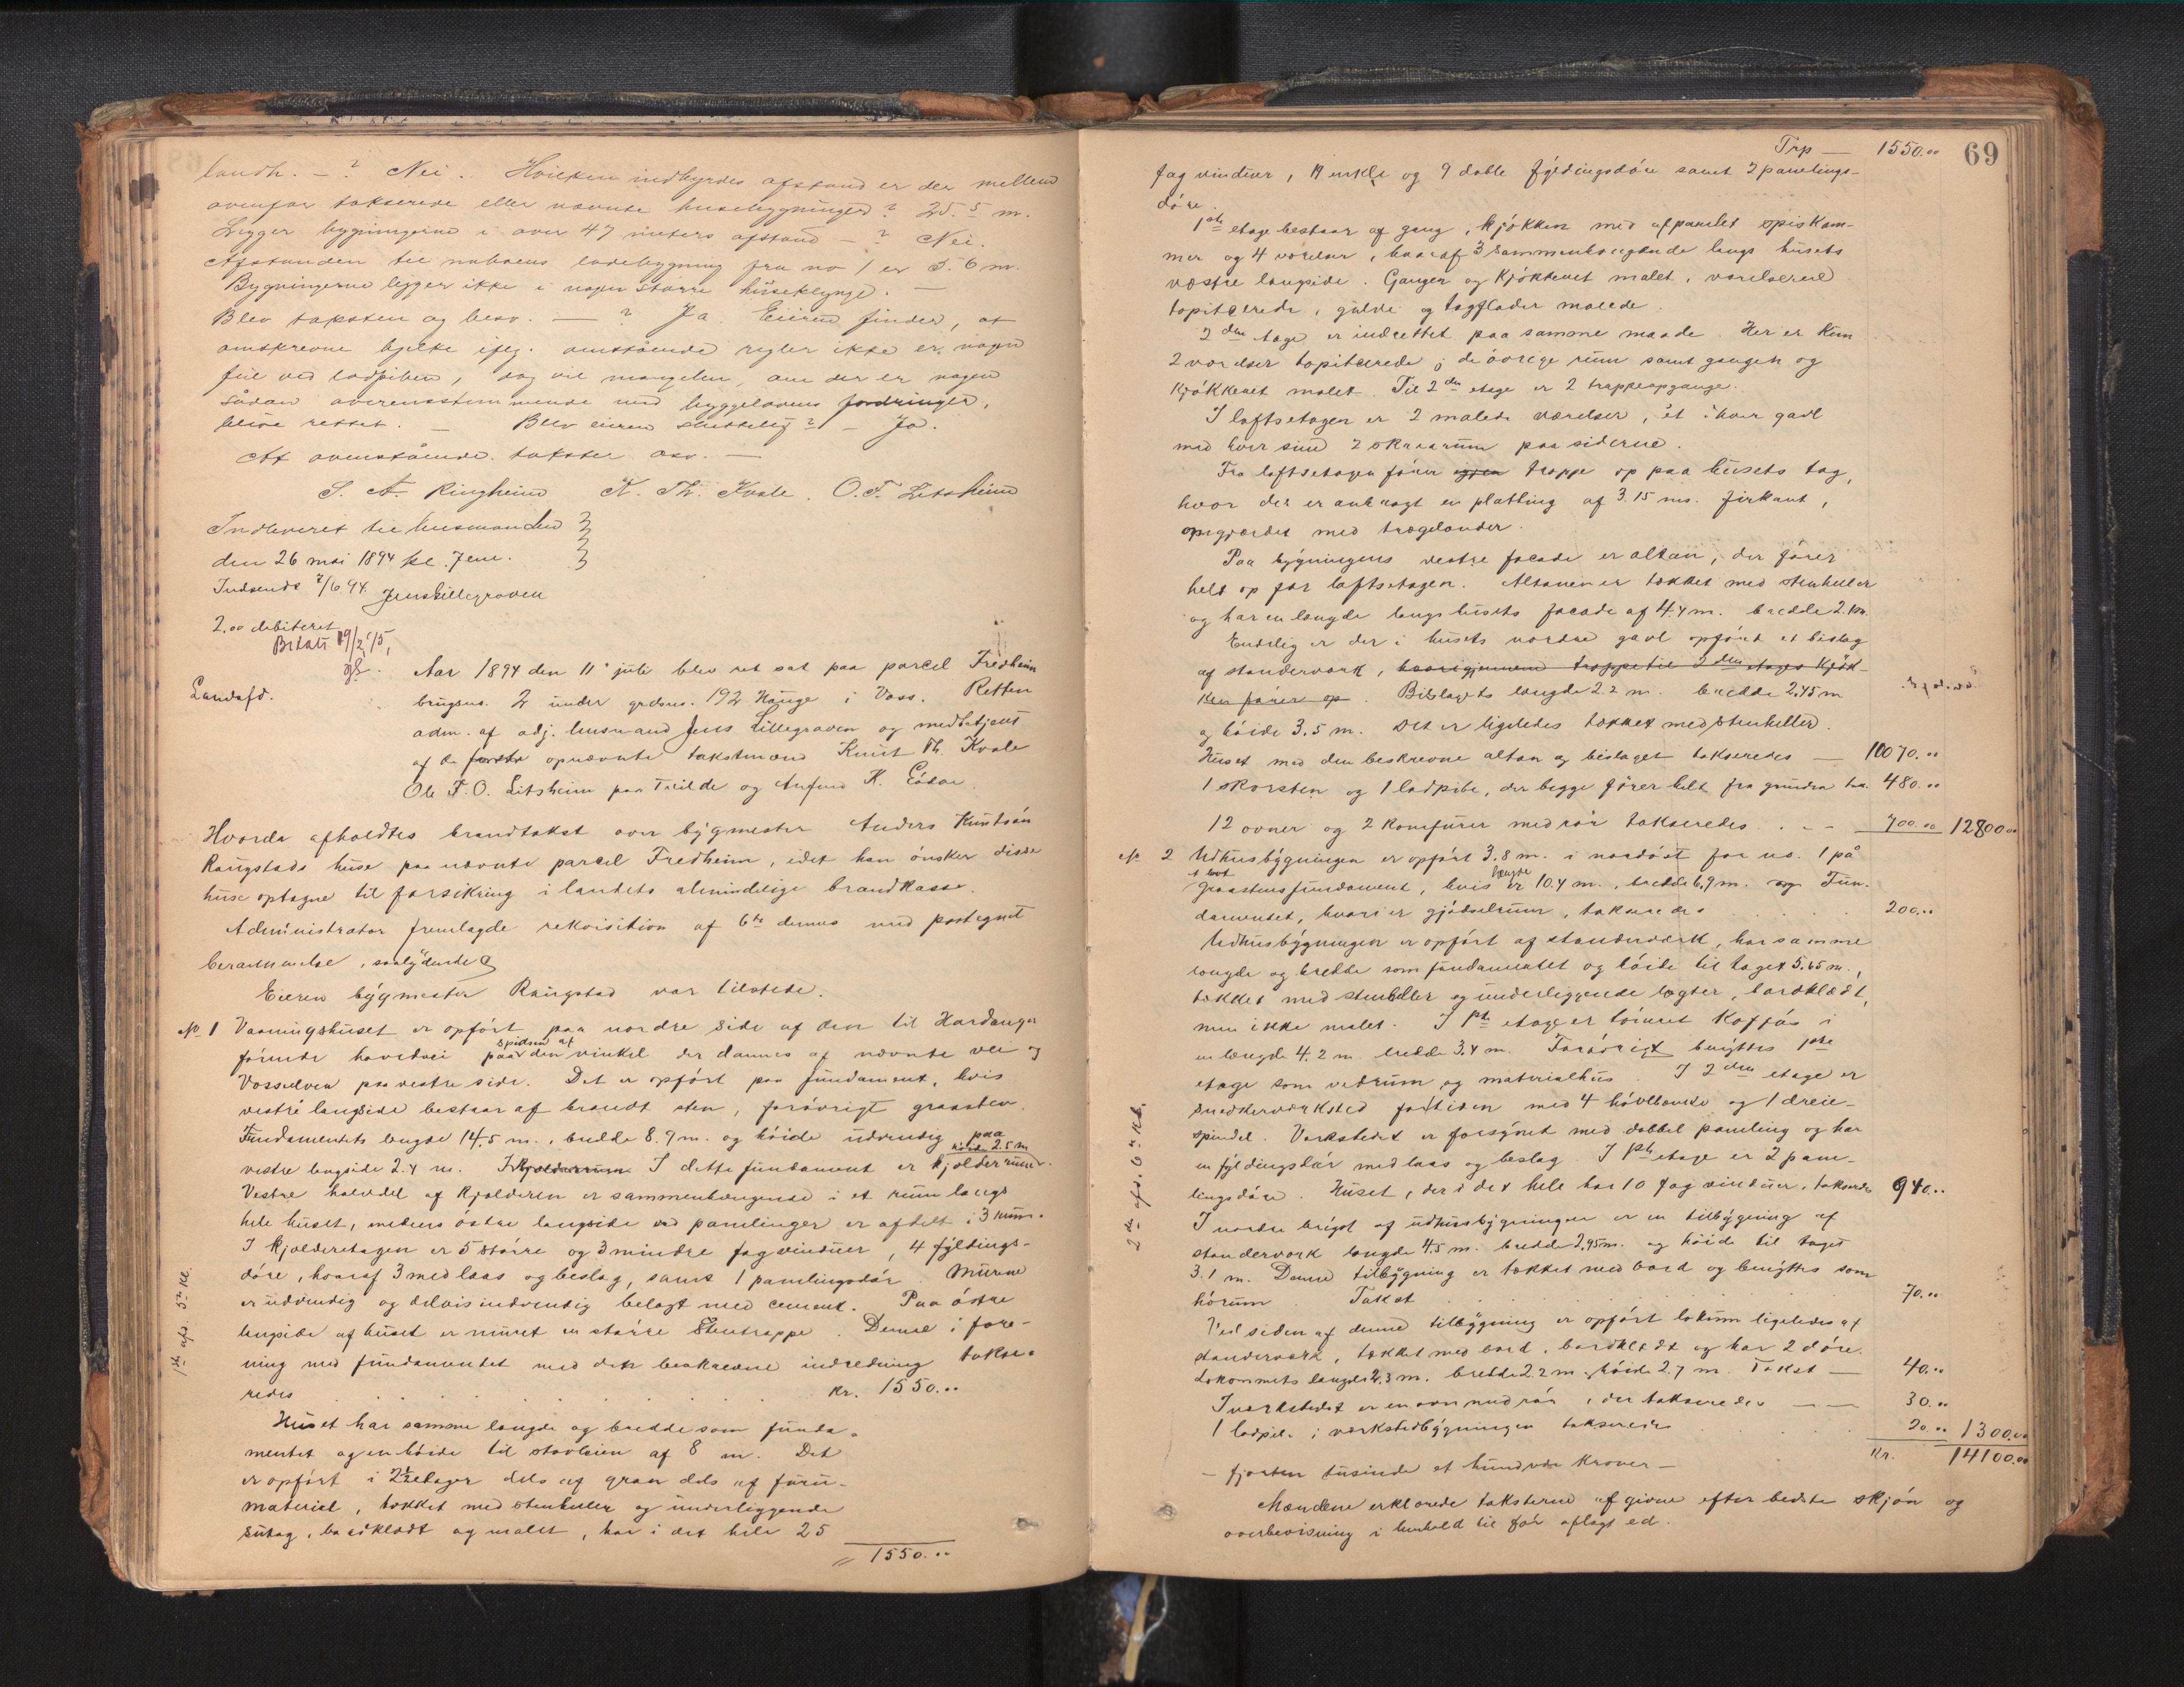 landh. – ? Nei. Hvilken indbyrdes afstand er der mellem
ovenfor takserede eller nævnte husebygninger? 25.5 m.
Ligger bygningerne i over 47 meters afstand – ? Nei.
Afstanden til naboens ladebygning fra no 1 er 5.6 m.
Bygningerne ligger ikke i nogen større huseklynge. –
Blev taksten og besv. – ? Ja. Eieren finder, at
omskrevne ifølg. omstående regler ikke er nogen
feil ved ladpiben, dog vil mangelen, om der er nogen
sådan overensstemmende med byggelovens fordringer,
blive rettet. – Blev eieren sluttelig? – Ja.
At ovenstående takster osv. –
S. A. Ringheim K. Th. Kvale. O. F. Litsheim
Indleveret til lensmanden
den 26 mai 1894 kl. 7 em.
Indsendt 2/6 94. Jens Lillegraven
2.00 debiteret
Betalt 19/2 95,
Landsfd.
Aar 1894 den 11. juli blev ret sat paa parcel Fredheim
brugsno. 2 under grdsno. 192 Hauge i Voss. Retten
adm. af adj. lensmand Jens Lillegraven og medbetjent
af de forste opnævnte takstmænd Knut Th. Kvale
Ole F. O. Litsheim paa Tvilde og Anfind K.
Hvorda afholdtes brandtakst over bygmester Anders Knutsøn
Rongstads huse paa nævnte parcel Fredheim, idet han ønsker disse
huse optagne til forsikring i landets almindelige brandkasse.
Administrator fremlagde rekvisition af 6te dennes med paategnet
berammelse, saalydende
Eieren bygmester Rongstad var tilstede.
No 1 Vaaningshuset er opført paa nordre side af den til Hardanger
førende hovedvei paa spidsen af den vinkel der dannes af nævnte vei og
Vosselven paa vestre side. Det er opført paa fundament, hvis
vestre langside bestaar af brændt sten, forøvrigt graasten.
Fundamentets længde 14,5 m., bredde 8.9 m. og høide udvendig paa
vestre langside 2.4 m. I kjælderrum I dette fundament er kjælderrum høide 2.5 m.
Vestre halvdel af kjælderen er sammenhængende i et rum langs
hele huset, medens østre langside ved panelinger er afdelt i 3 rum.
I kjælderetagen er 5 større og 3 mindre fag vinduer, 4 fyldings-
døre, hvoraf 3 med laas og beslag, samt 1 panelingsdør. Murene
er udvendig og delvis indvendig belagt med cement. Paa østre
langside af huset er muret en større Stentrappe. Denne i fore-
ning med fundamentet med den beskrevne indredning takse-
redes . . . . . . . kr. 1550.00
1ste afd. 5te Kl.
Huset har samme længde og bredde som funda-
mentet og en høide til stavleien af 8 m. Det
er opført i 2½ etager dels af gran dels af furu-
materiel, tækket med stenheller og underliggende
sutag, bordklædt og malet, har i det hele 25
1550.00
69
Trp — 1550.00
fag vinduer, 11 enkle og 9 doble fyldingsdøre samt 2 panelings-
døre.
1ste etage bestaar af gang, kjøkken med afpanelet spiskam-
mer og 4 værelser, hvoraf 3 sammenhængende langs husets
vestre langside. Gangen og kjøkkenet malet, værelserne
tapitserede, gulve og tagflader malede.
2den etage er indrettet paa samme maade. Her er kun
2 værelser tapitserede; de øvrige rum samt gangen og
kjøkkenet malet. Til 2den etage er 2 trappeopgange.
I loftsetagen er 2 malede værelser, et i hver gavl
med hver sine 2 skraarum paa siderne.
Fra loftsetagen fører igjen trappe op paa husets tag,
hvor der er anbragt en platting af 3.15 ms. firkant,
omgjærdet med trægelænder.
Paa bygningens vestre facade er altan, der fører
helt op for loftsetagen. Altanen er tækket med stenheller
og har en længde langs husets facade af 4.4 m. bredde 2. m.
Endelig er der i husets nordre gavl opført et bislag
af standerværk, hvorigjennem trappe til 2den etages kjøk-
ken fører op. Bislagets længde 2.2 m. bredde 2.45 m
og høide 3.5 m. Det er ligeledes tækket med stenheller.
Huset med den beskrevne altan og bislaget takseredes — 10070.00
1 skorsten og 1 ladpibe, der begge fører helt fra grunden tax. 480.00
12 ovner og 2 komfurer med rør takseredes . — 700.00 12800.00
No 2 Udhusbygningen er opført 3.8 m. i nordøst for no. 1 på
graastensfundament, hvis længde er 10.4 m., bredde 6,9 m. og Fun-
damentet, hvori er gjødselrum, takseredes . . . 200.00
Udhusbygningen er opført af standerværk, har samme
længde og bredde som fundamentet og høide til taget 5.65 m.,
tækket med stenheller og underliggende lægter, bordklædt,
men ikke malet. I 1ste etage er tømret Koffjøs i
en længde 4.2 m. bredde 3.4 m. Forøvrigt benyttes 1ste
etage som vedrum og materialhus. I 2den etage er
snedkerværksted fortiden med 4 høvlbænke og 1 dreie-
spindel. Værkstedet er forsynet med dobbel paneling og har
en fyldingsdør med laas og beslag. I 1ste etage er 2 pane-
lingsdøre. Huset, der i det hele har 10 fag vinduer, takseredes 940.00
2den afd. 6te Kl.
I nordre brygst af udhusbygningen er en tilbygning af
standerværk længde 4.5 m. bredde 2,95 m. og høide til taget
3.1 m. Denne tilbygning er tækket med bord og benyttes som
hørum . Takst . . . . . 70.00
Ved siden af denne tilbygning er opført lokum ligeledes af
standerværk, tækket med bord, bordklædt og har 2 døre.
Lokummets længde 2.3 m. bredde 2.2 m. høide 2.7 m. Takst — 40.00
I værkstedet er en ovn med rør, der takseredes — — 30.00
1 ladpibe i værkstedbygningen takseredes . . . 20.00 1300.00
– fjorten tusinde et hundrede kroner – Kr. 14100.00
Mændene erklærede taksterne afgivne efter bedste skjøn og
overbevisning i henhold til før aflagt ed.